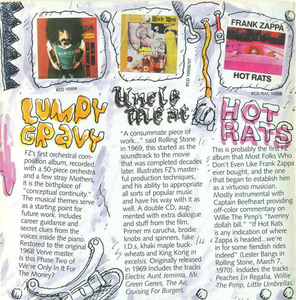 FRANK ZAPPA
HOT RATS
RCD 10504
RCD 10506/07
LUMPY
GRAVY
FZ's first orchestral com-
position album, recorded
with a 50-piece orchestra
and a few stray Mothers,
it is the birthplace of
"conceptual continuity."
The musical themes serve
as a starting point for
future work. Includes
career guidance and
secret clues from the
voices inside the piano.
Restored to the original
1968 Verve master.
Is this Phase Two of
We're Only In It For
The Money?
Uncle
Meat
"A consummate piece of
work..." said Rolling Stone
in 1969, this started as the
soundtrack to the movie
that was completed decades
later. Illustrates FZ's master-
ful production techniques,
and his ability to appropriate
all sorts of popular music
and have his way with it as
well. A double CD, aug-
mented with extra dialogue
and stuff from the film.
Primer mi carucha, brodie
knobs and spinners, fake
I.D.s, khaki maple buck-
wheats and King Kong in
excelsis. Originally released
in 1969 Includes the tracks
Electric Aunt Jemima, Dog
Green Genes, The Air,
Cruising For Burgers.
HOT
RATS
This is probably the first FZ
album that Most Folks Who
Don't Even Like Frank Zappa
ever bought, and the one
that began to establish him
as a virtuoso musician.
Mostly instrumental with
Captain Beefheart providing
off-color commentary on
Willie The Pimp's "twenny
dollah bill." "If Hot Rats
is any indication of where
Zappa is headed...we're
in for some fiendish rides
indeed" (Lester Bangs in
Rolling Stone, March 7,
1970). Includes the tracks
Peaches En Regalia, Willie
The Pimp, Little Umbrellas.